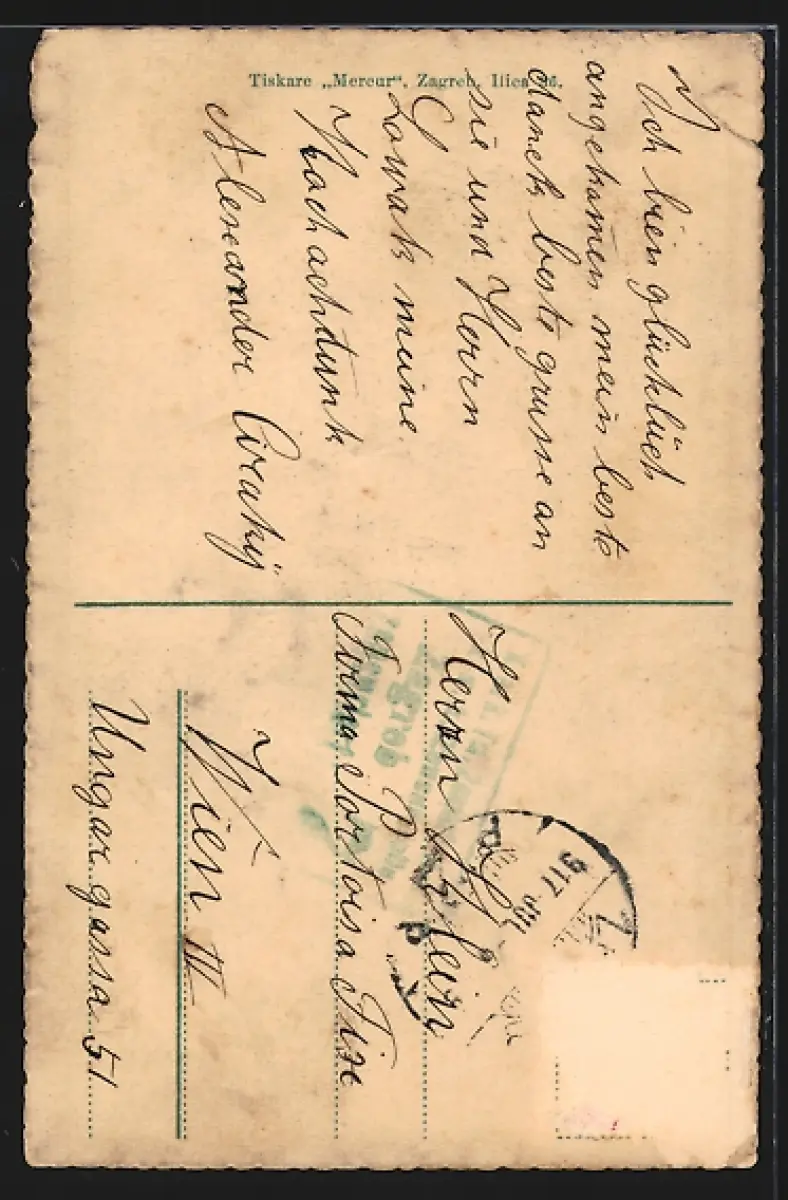 Tiskare „Mercur“, Zagreb, Ilica
Ich bien glücklich
angekomen mein beste
danck beste grusse an
sie und Herrn
Lowak meine
Hochachtunk
Alexander
Herrn Klein
Firma Portois a Fix
Wien III
Ungar gassa 51
Zagreb
917